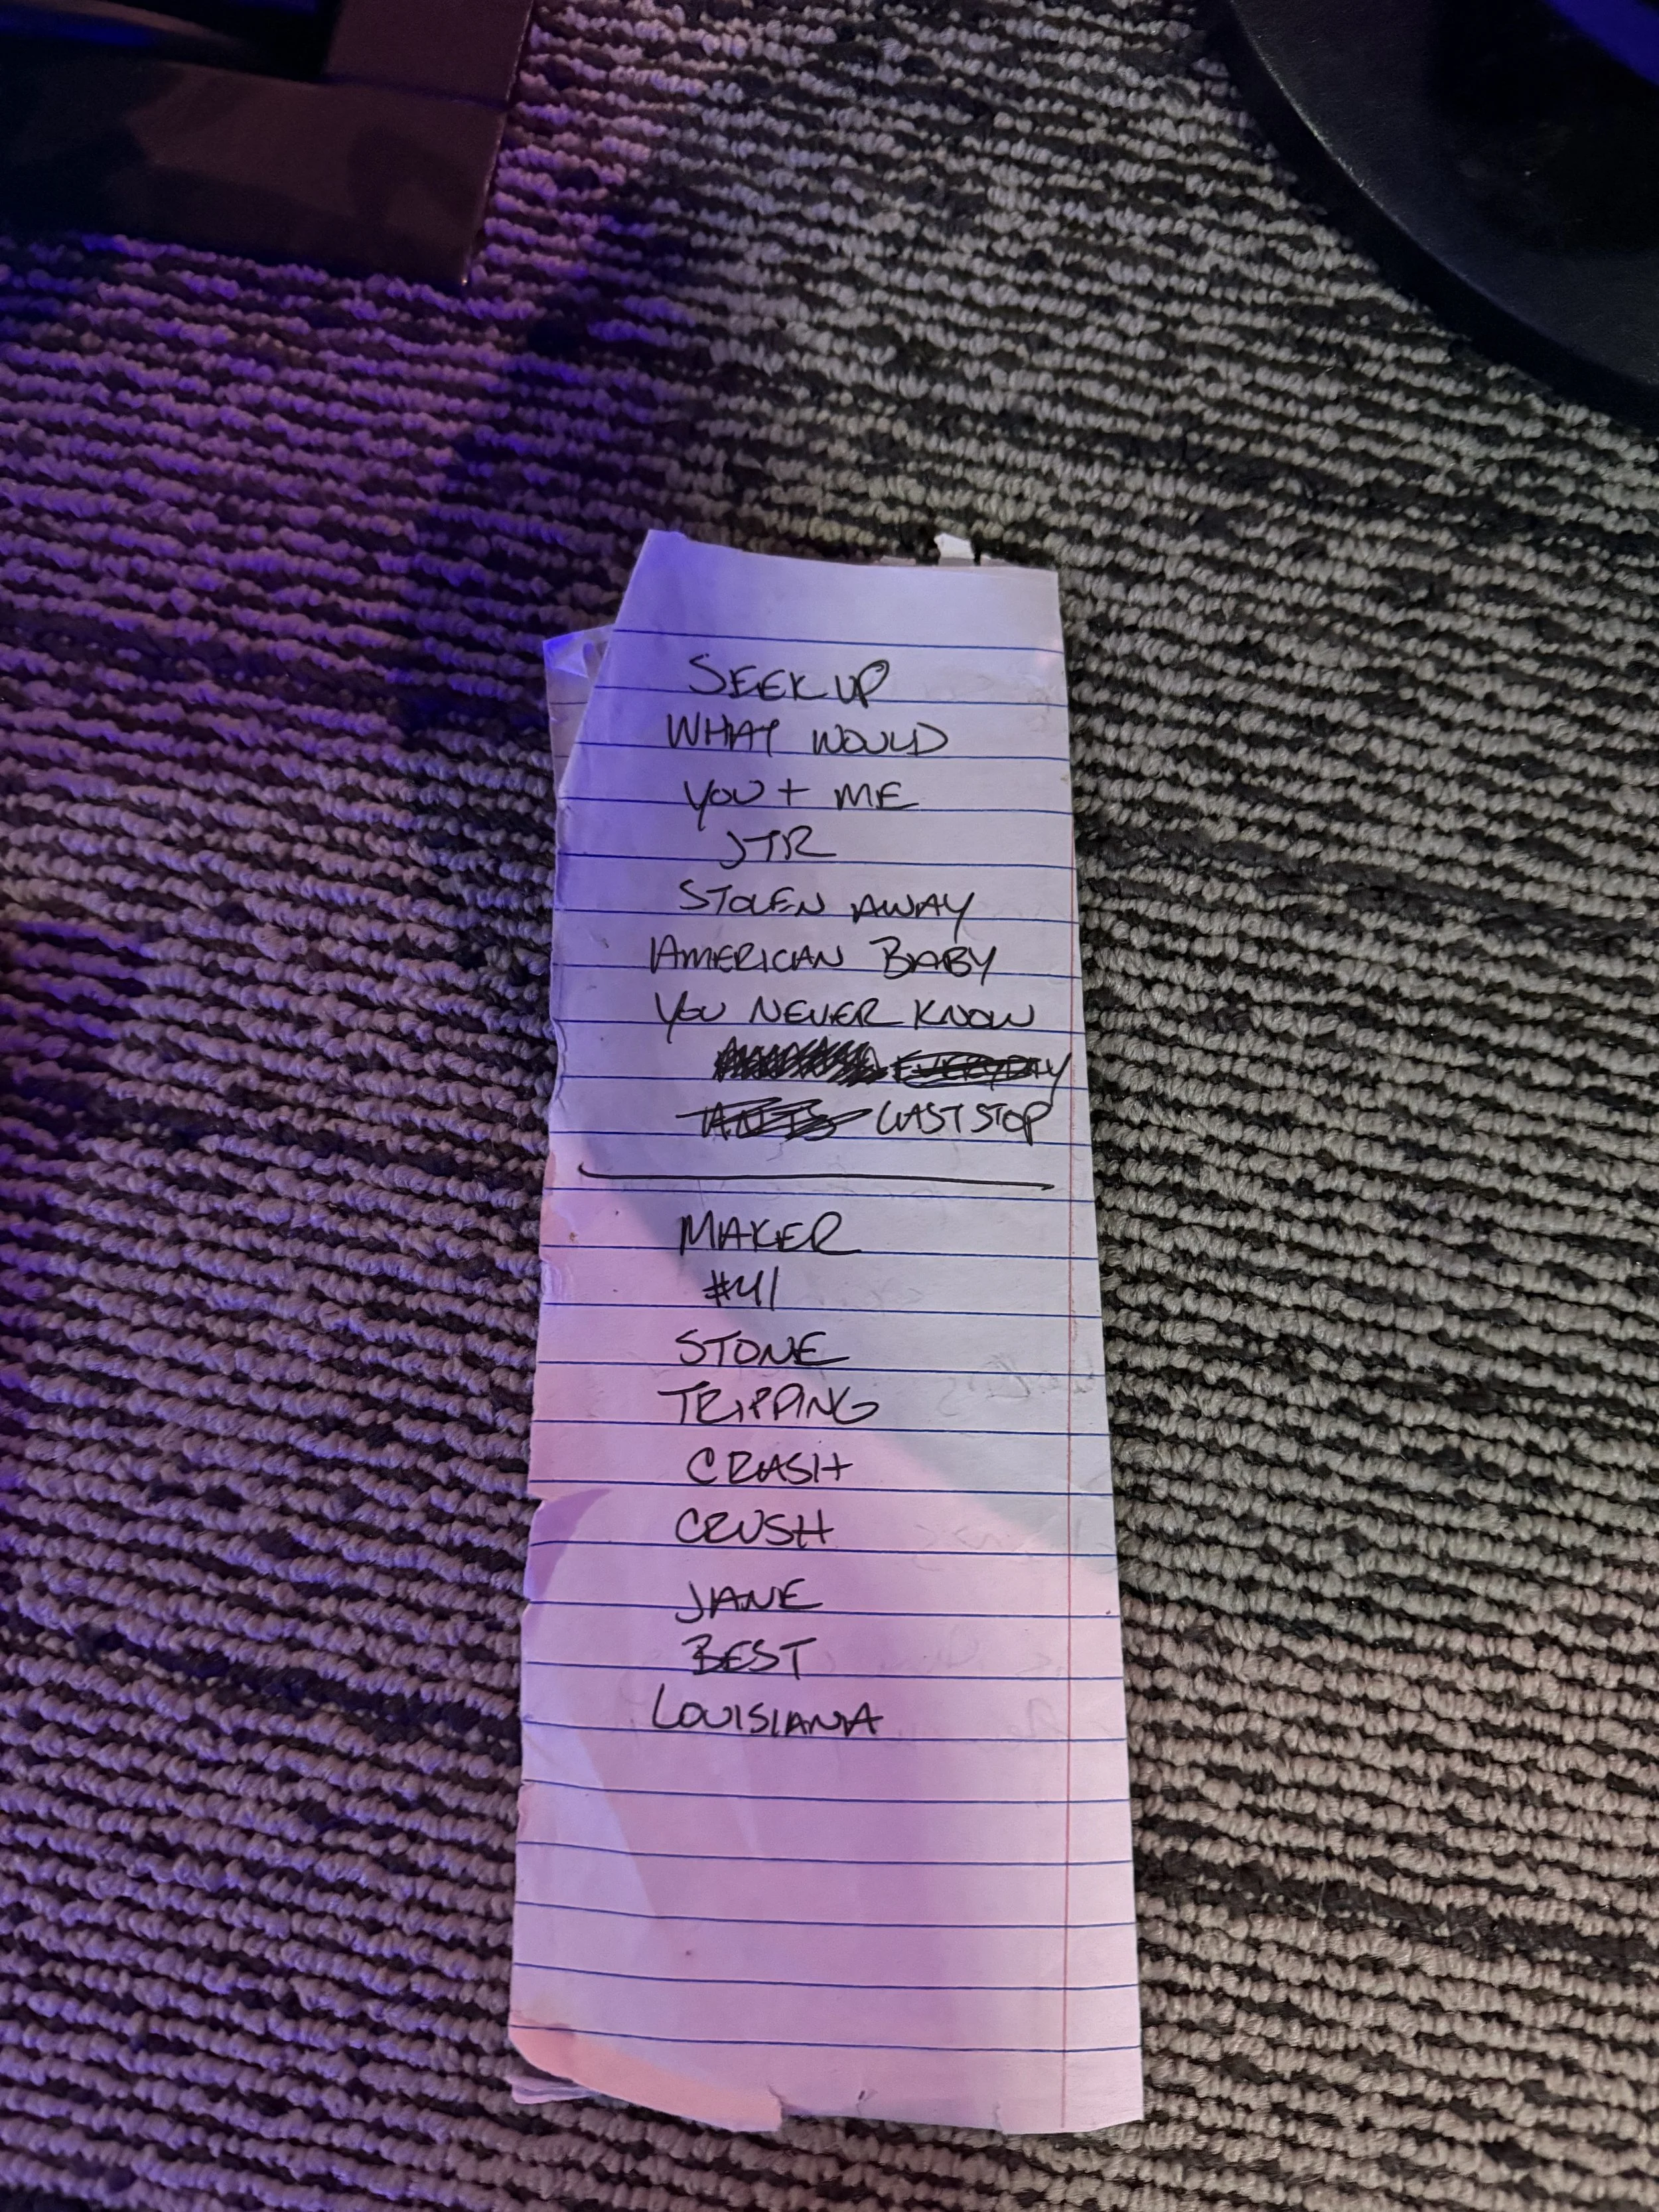 SEEK UP
WHAT WOULD
YOU + ME
JTR
STOLEN AWAY
AMERICAN BABY
YOU NEVER KNOW
EVERYDAY
LAST STOP
MAKER
#41
STONE
TRIPPING
CRASH
CRUSH
JANE
BEST
LOUISIANA